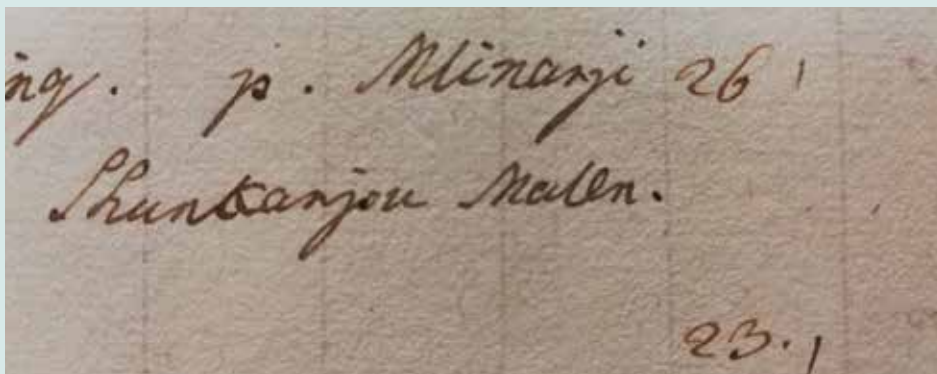 ing. p. Mlinarji 26 1
Shunkanjou Malen.
23. 1